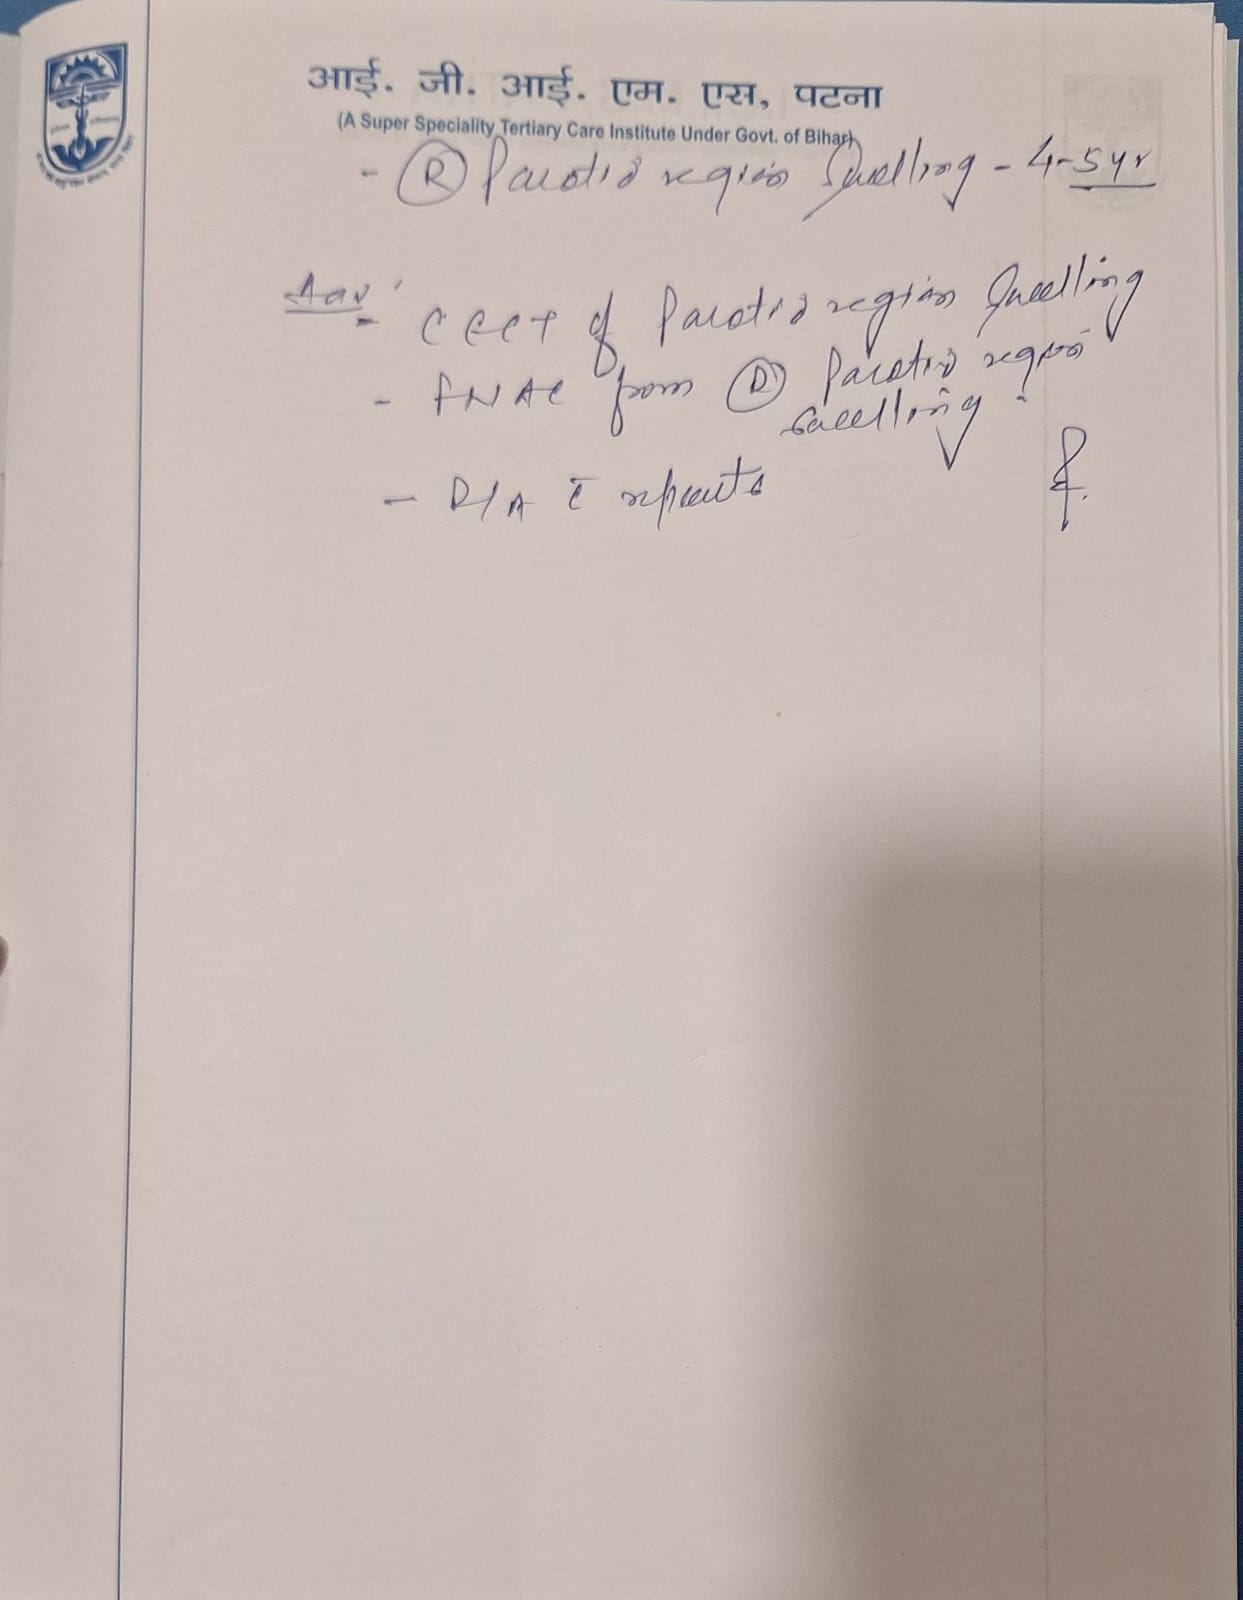 आई. जी. आई. एम. एस, पटना
(A Super Speciality Tertiary Care Institute Under Govt. of Bihar)
- Ⓡ Parotid region Swelling - 4-5yr
Adv:
- CECT of Parotid region Swelling
- FNAC from Ⓡ Parotid region
Swelling.
- R/A c̄ reports